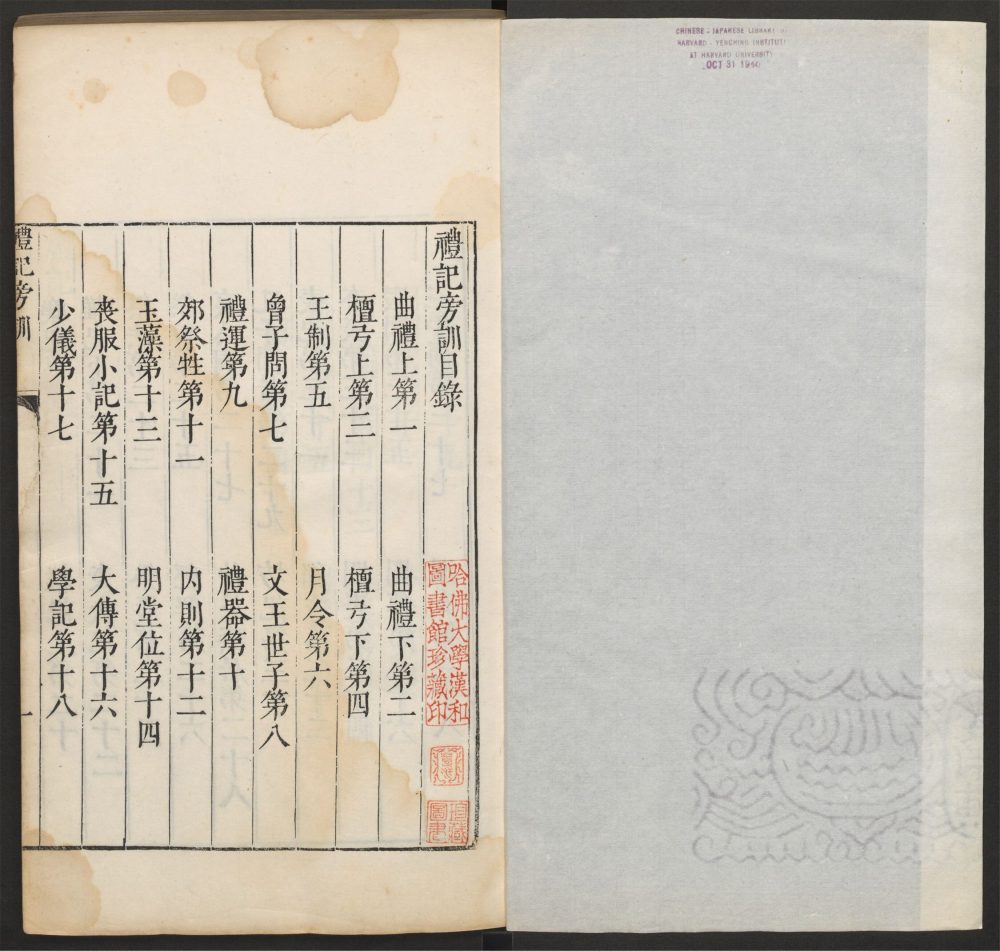 CHINESE - JAPANESE LIBRARY
HARVARD - YENCHING INSTITUTE
AT HARVARD UNIVERSITY
OCT 31 1940
禮記旁訓目錄
曲禮上第一 曲禮下第二
檀弓上第三 檀弓下第四
王制第五 月令第六
曾子問第七 文王世子第八
禮運第九 禮器第十
郊祭牲第十一 内則第十二
玉藻第十三 明堂位第十四
喪服小記第十五 大傳第十六
少儀第十七 學記第十八
禮記旁訓 一
哈佛大學漢和
圖書館珍藏印